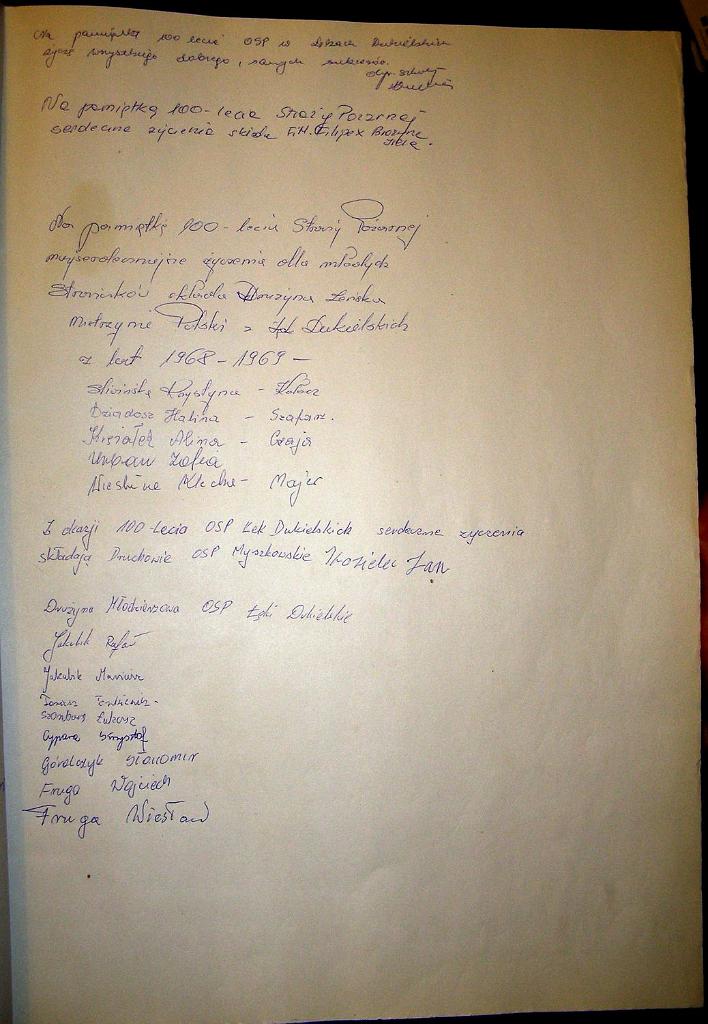 Na pamiątkę 100 lecia OSP w Łękach Dukielskich
życzę wszystkiego dobrego, samych sukcesów.
Dyr. Szkoły
Na pamiętkę 100-lecia Straży Pożarnej
serdeczne życzenia składa F.H. Filipex
Na pamiętkę 100-lecia Straży Pożarnej
najserdeczniejsze życzenia dla młodych
Strażaków składa Drużyna Żeńska
Mistrzynie Polski z Łęk Dukielskich
z lat 1968-1969 –
Śliwińska Krystyna -
Dziadosz Halina - Szafarz.
Alina - Czaja
Urban Zofia
- Majer
Z okazji 100-Lecia OSP Łęk Dukielskich serdeczne życzenia
składają Druchowie OSP Myszkowskie Koziełec Jan
Drużyna Młodzieżowa OSP Łęki Dukielskie
Jakubik Rafał
Jakubik Mariusz
Tomasz
Szombara Łukasz
Cypara Krzysztof
Góralczyk Sławomir
Fruga Wojciech
Fruga Wiesław